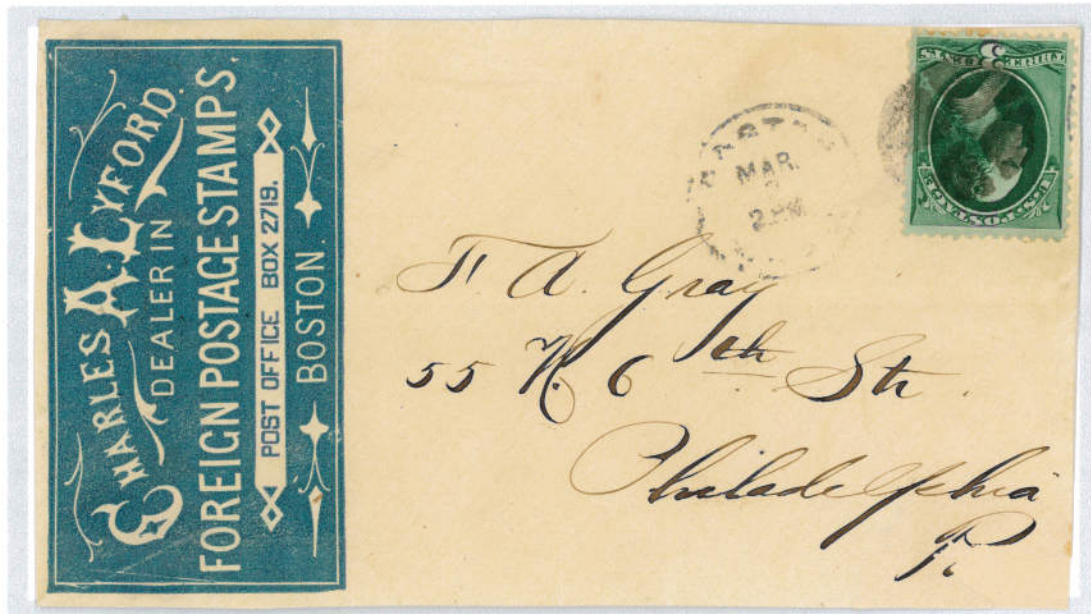 CHARLES A. LYFORD.
DEALER IN
FOREIGN POSTAGE STAMPS.
POST OFFICE BOX 2719.
BOSTON.
MAR.
2 PM
3
U.S. POSTAGE
F. A. Gray
55 N. 6th Str.
Philadelphia